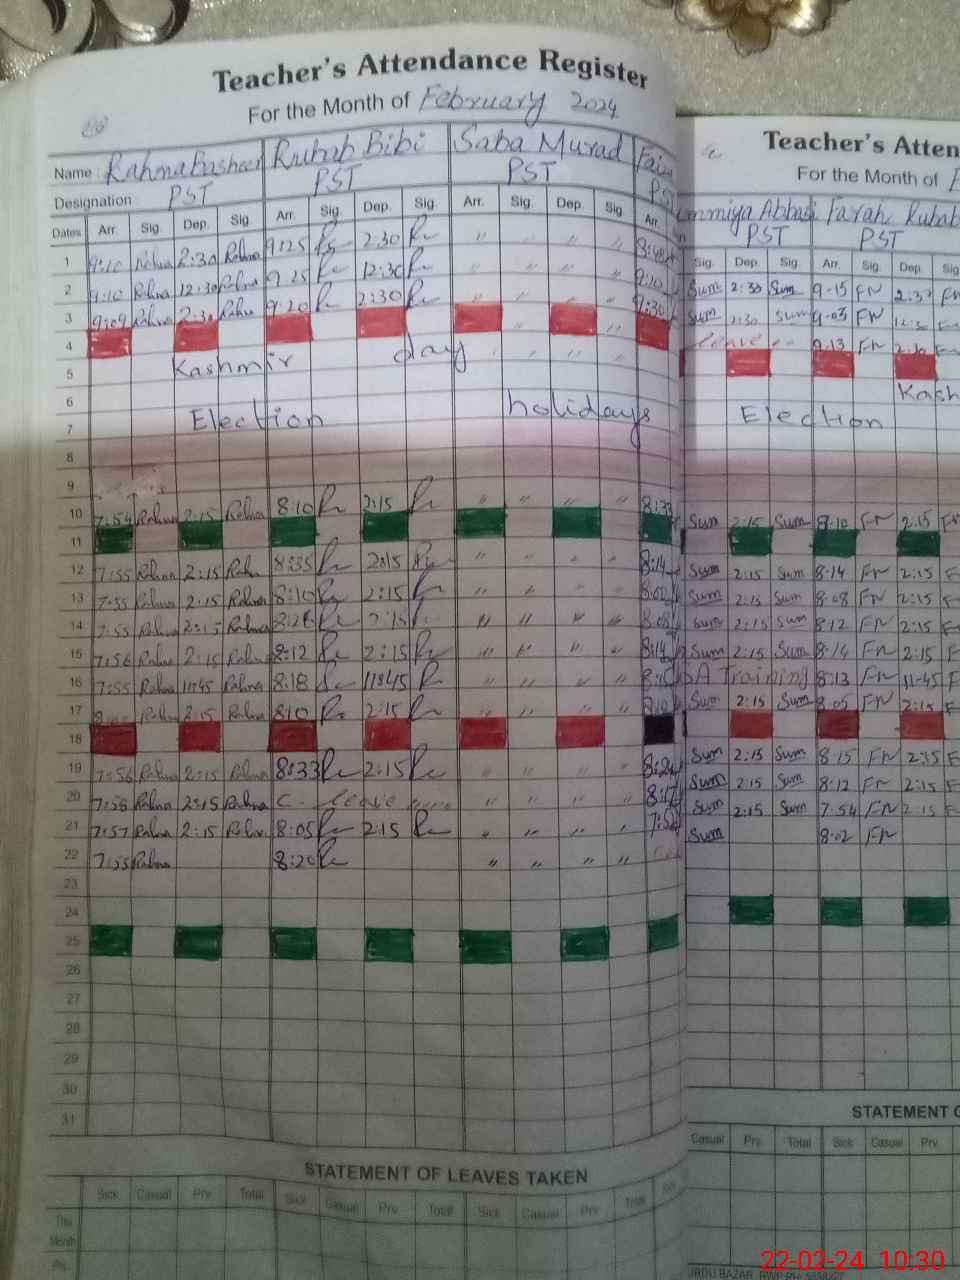 Teacher's Attendance Register
For the Month of February 2024
Name Rahma Basheer Rubab Bibi Saba Murad
PST PST PST
Designation
Dates Arr. Sig. Dep. Sig. Arr. Sig. Dep. Sig. Arr. Sig. Dep. Sig. Arr.
1 9:10 Rahma 2:30 Rahma 9:25 2:30 " " " " 8:48
2 9:10 Rahma 12:30 Rahma 9 25 12:30 " " " " 9:10
3 9:09 Rahma 2:30 Rahma 9:20 2:30 " " " 9:30
4
5 Kashmir day
6
7 Election holidays
8
9
10 7:54 Rahma 2:15 Rahma 8:10 2:15 " " " " 8:33
11
12 7:55 Rahma 2:15 Rahma 8:35 2:15 " " " " 8:14
13 7:55 Rahma 2:15 Rahma 8:10 2:15 " " " "
14 7:55 Rahma 2:15 Rahma 2:15 " " " " 8:08
15 7:56 Rahma 2:15 Rahma 8:12 2:15 " " " " 8:14
16 7:55 Rahma 11:45 Rahma 8:18 11:45 " " " "
17 2:15 Rahma 8:10 2:15 " " " "
18
19 7:56 Rahma 2:15 Rahma 8:33 2:15 " " " "
20 7:58 Rahma 2:15 Rahma C. leave " " " " 8:17
21 7:57 Rahma 2:15 Rahma 8:05 2:15 " " " "
22 7:55 Rahma 8:20 " " " "
23
24
25
26
27
28
29
30
31
STATEMENT OF LEAVES TAKEN
Sick Casual Prv. Total Sick Casual Prv. Total Sick Casual Prv. Total
This Month
Teacher's Atten
For the Month of
Abbasi Farah Rubab
PST PST
Sig. Dep. Sig. Arr. Sig. Dep.
Sum 2:30 Sum 9-15 FN 2:30
Sum 2:30 Sum 9-05 FN
leave 9-13 FN
Kash
Election
Sum 2:15 Sum 8-10 FN 2:15
Sum 2:15 Sum 8-14 FN 2:15
Sum 2:15 Sum 8-08 FN 2:15
Sum 2:15 Sum 8:12 FN 2:15
Sum 2:15 Sum 8-14 FN 2:15
Training 8-13 FN 11-45
Sum 2:15 Sum 8-05 FN 2:15
Sum 2:15 Sum 8-15 FN 2:15
Sum 2:15 Sum 8-12 FN 2:15
Sum 2:15 Sum 7-54 FN 2-15
Sum 8-02 FN
STATEMENT O
Casual Prv. Total Sick Casual Prv.
22-02-24 10:30